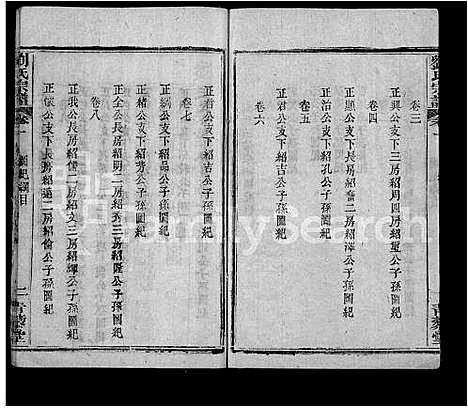 卷三
正興公支下三房紹周四房紹堊公子孫圖紀
卷四
正顯公支下長房紹富二房紹澤公子孫圖紀
正次公支下紹孔公子孫圖紀
卷五
正癸公支下紹吉公子孫圖紀
卷六
卷七
正綱公支下紹品公子孫圖紀
正緒公支下紹芳公子孫圖紀
正全公支下長房紹明二房紹秀三房紹隆公子孫圖紀
卷八
正我公支下長房紹儒二房紹文三房紹輝公子孫圖紀
正依公支下長房紹通二房紹倫公子孫圖紀
劉氏宗譜
卷一
圖紀綱目
二
青藜堂
FamilySearch